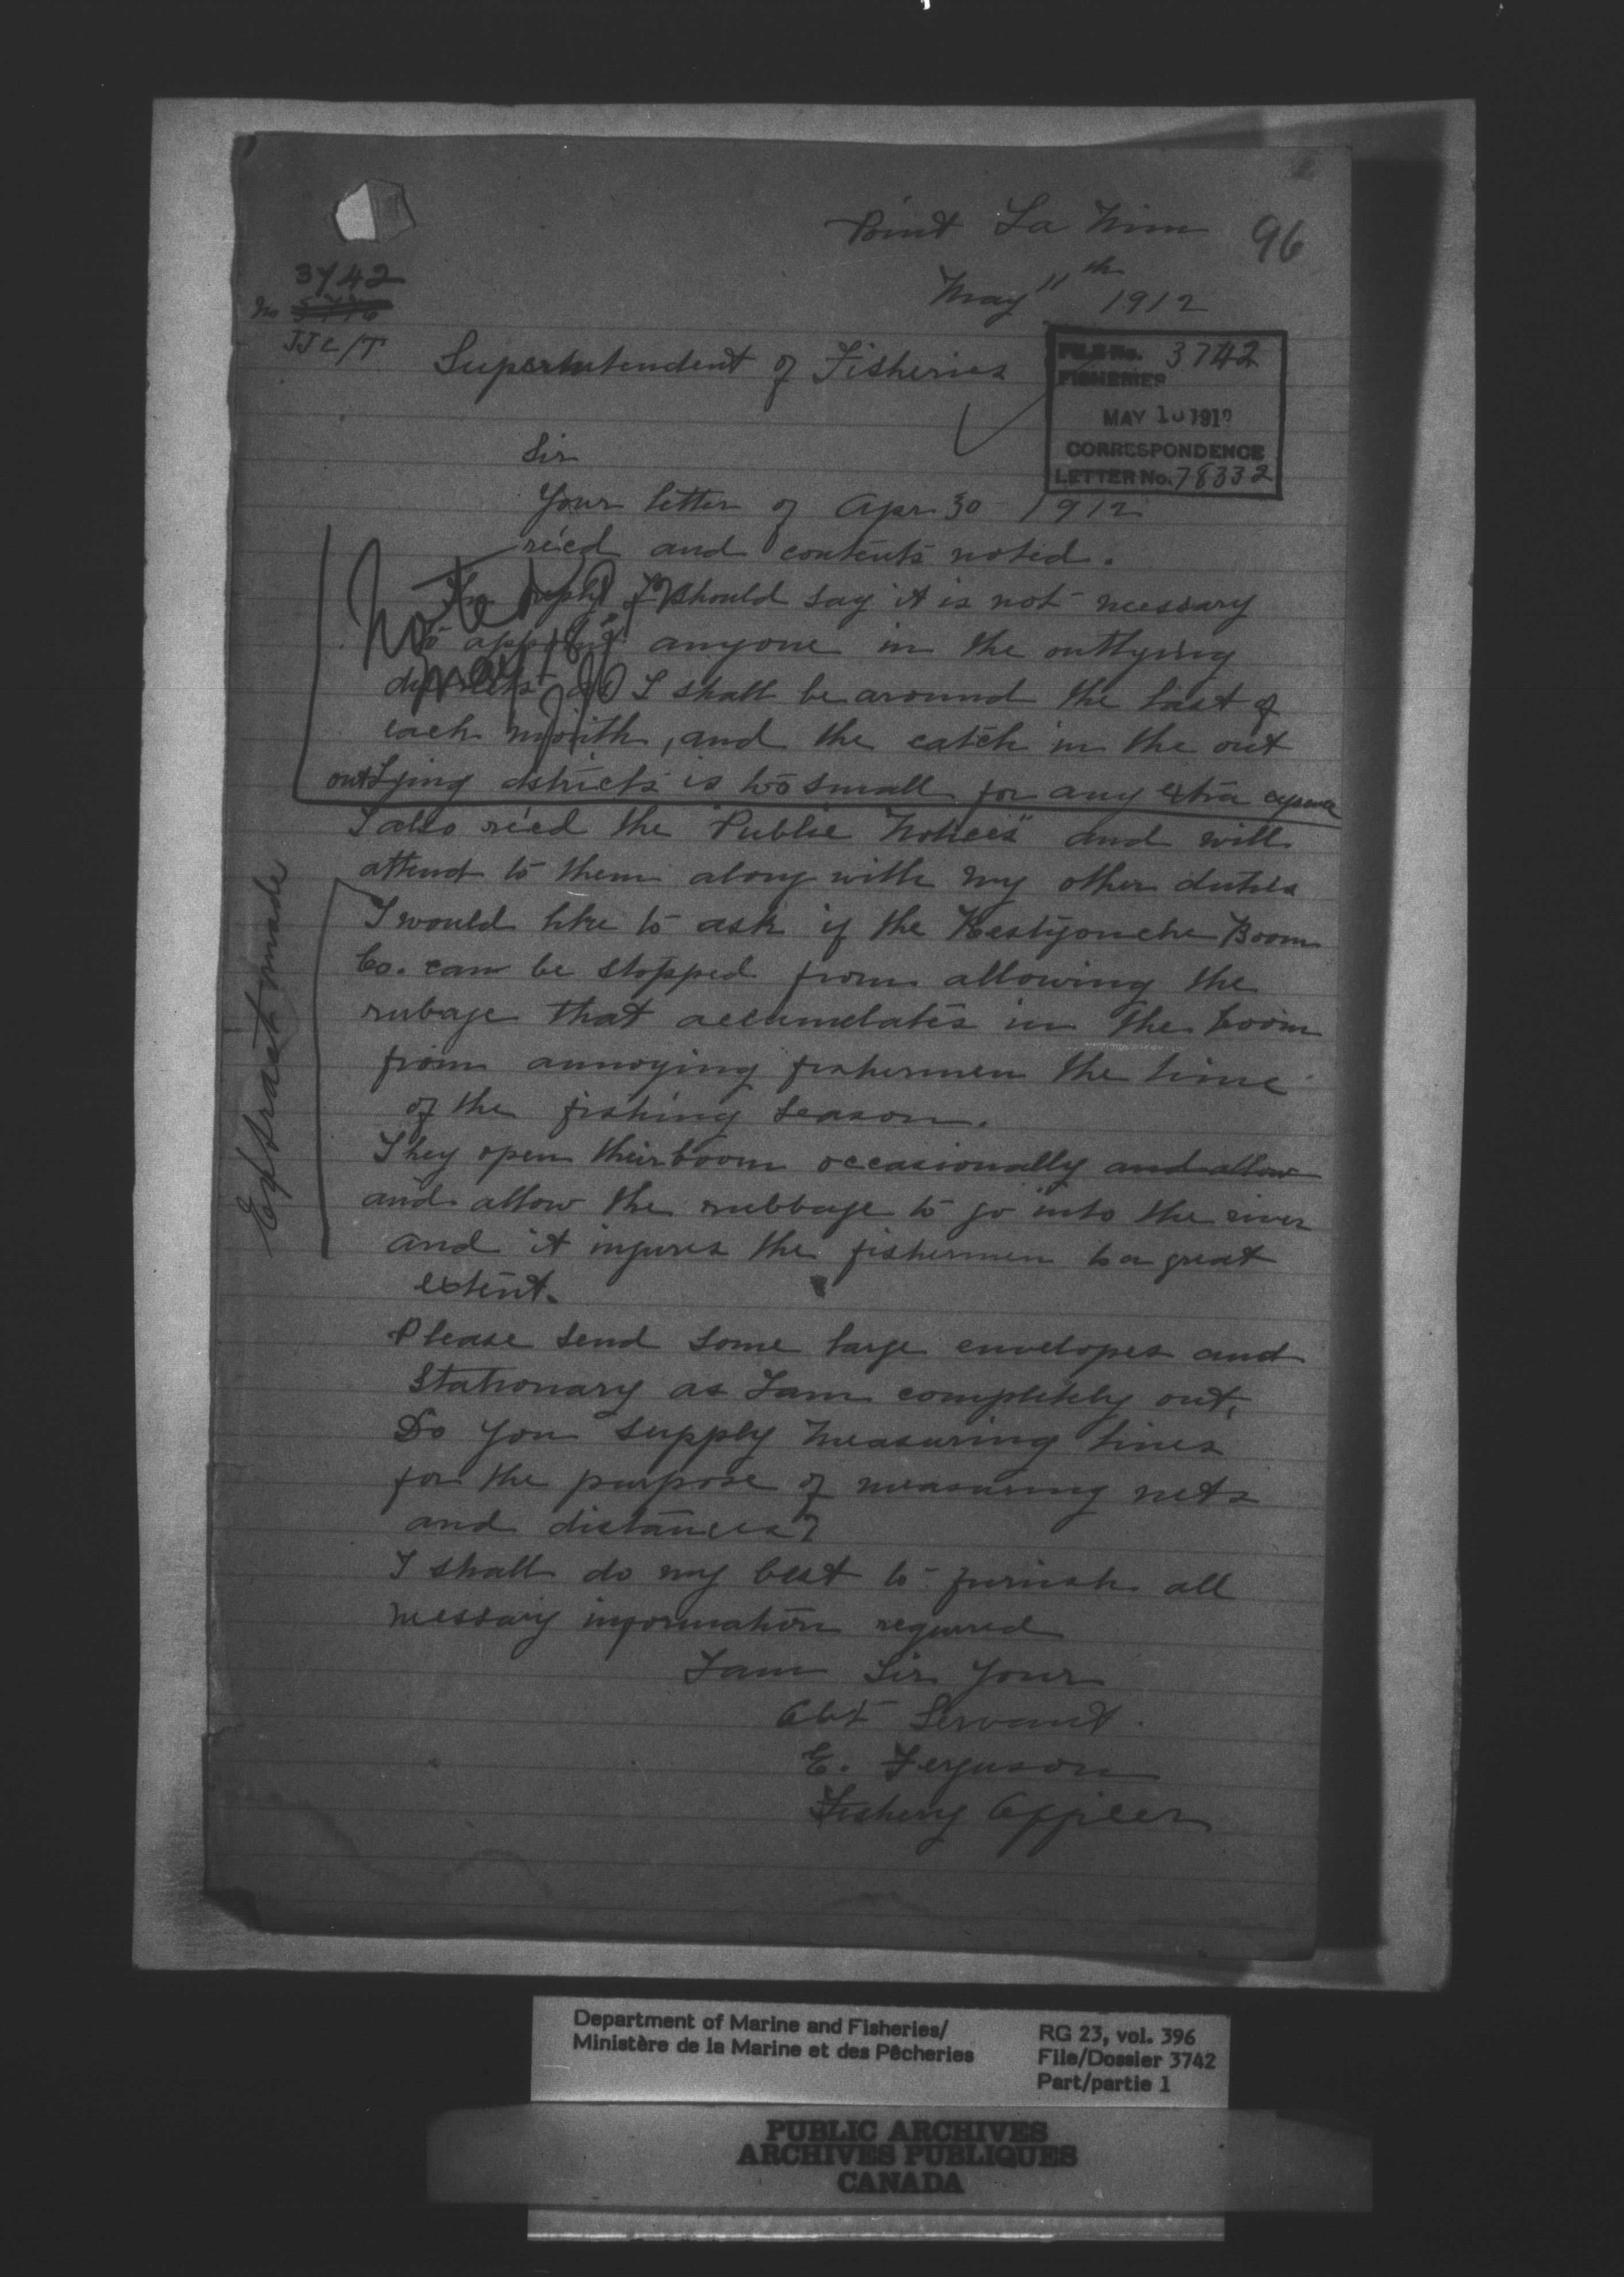 96
Point La Nim
May 11th 1912
3742
No
JJC/T
Superintendent of Fisheries
FILE No. 3742
FISHERIES
MAY 1 1912
CORRESPONDENCE
LETTER No. 78332
Sir
Your letter of Apr 30 1912
re'cd and contents noted.
In reply I should say it is not necessary
to appoint anyone in the outlying
districts as I shall be around the last of
each month, and the catch in the out
outlying dstricts is too small for any extra expense
Noted
May 18/12
I also re'ed the "Public Notices" and will
attend to them along with my other duties
Extract made
I would like to ask if the Restigouche Boom
Co. can be stopped from allowing the
rubage that accumelates in the boom
from annoying fishermen the time
of the fishing season.
They open their boom occasionally and allow
and allow the rubbage to go into the river
and it injures the fishermen to a great
extent.
Please send some large envelopes and
Stationary as I am completely out.
Do you supply measuring lines
for the purpose of measuring nets
and distances?
I shall do my best to furnish all
necessary information required
I am Sir Your
Obt Servant.
E. Ferguson
Fishery Officer
Department of Marine and Fisheries/
Ministère de la Marine et des Pêcheries
RG 23, vol. 396
File/Dossier 3742
Part/partie 1
PUBLIC ARCHIVES
ARCHIVES PUBLIQUES
CANADA